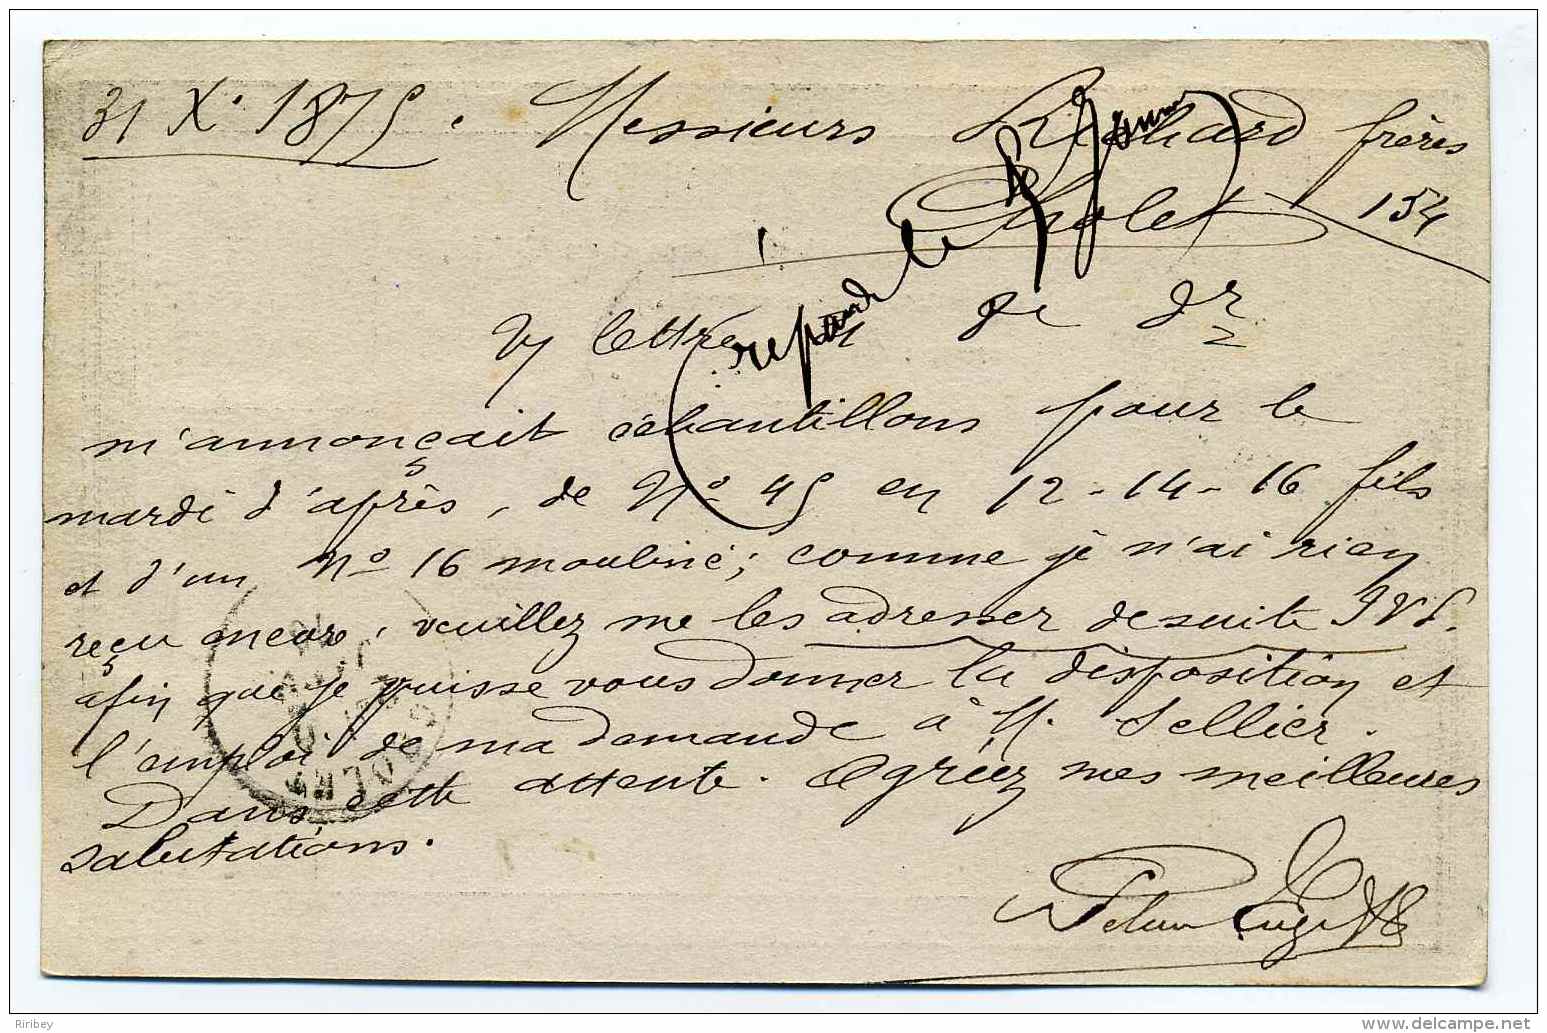 31 Xe 1875. Messieurs Richard frères
Cholet 154
répondu le 3 Janv
V/ lettre du de
m'annonçait échantillons pour le
mardi d'après, de No 45 en 12-14-16 fils
et d'un No 16 mouliné; comme je n'ai rien
reçu encore, veuillez me les adresser de suite
afin que je puisse vous donner la disposition et
l'emploi de ma demande à M. Sellier.
Dans cette attente. Agréez mes meilleures
salutations.
CHOLET
Riribey
delcampe.net